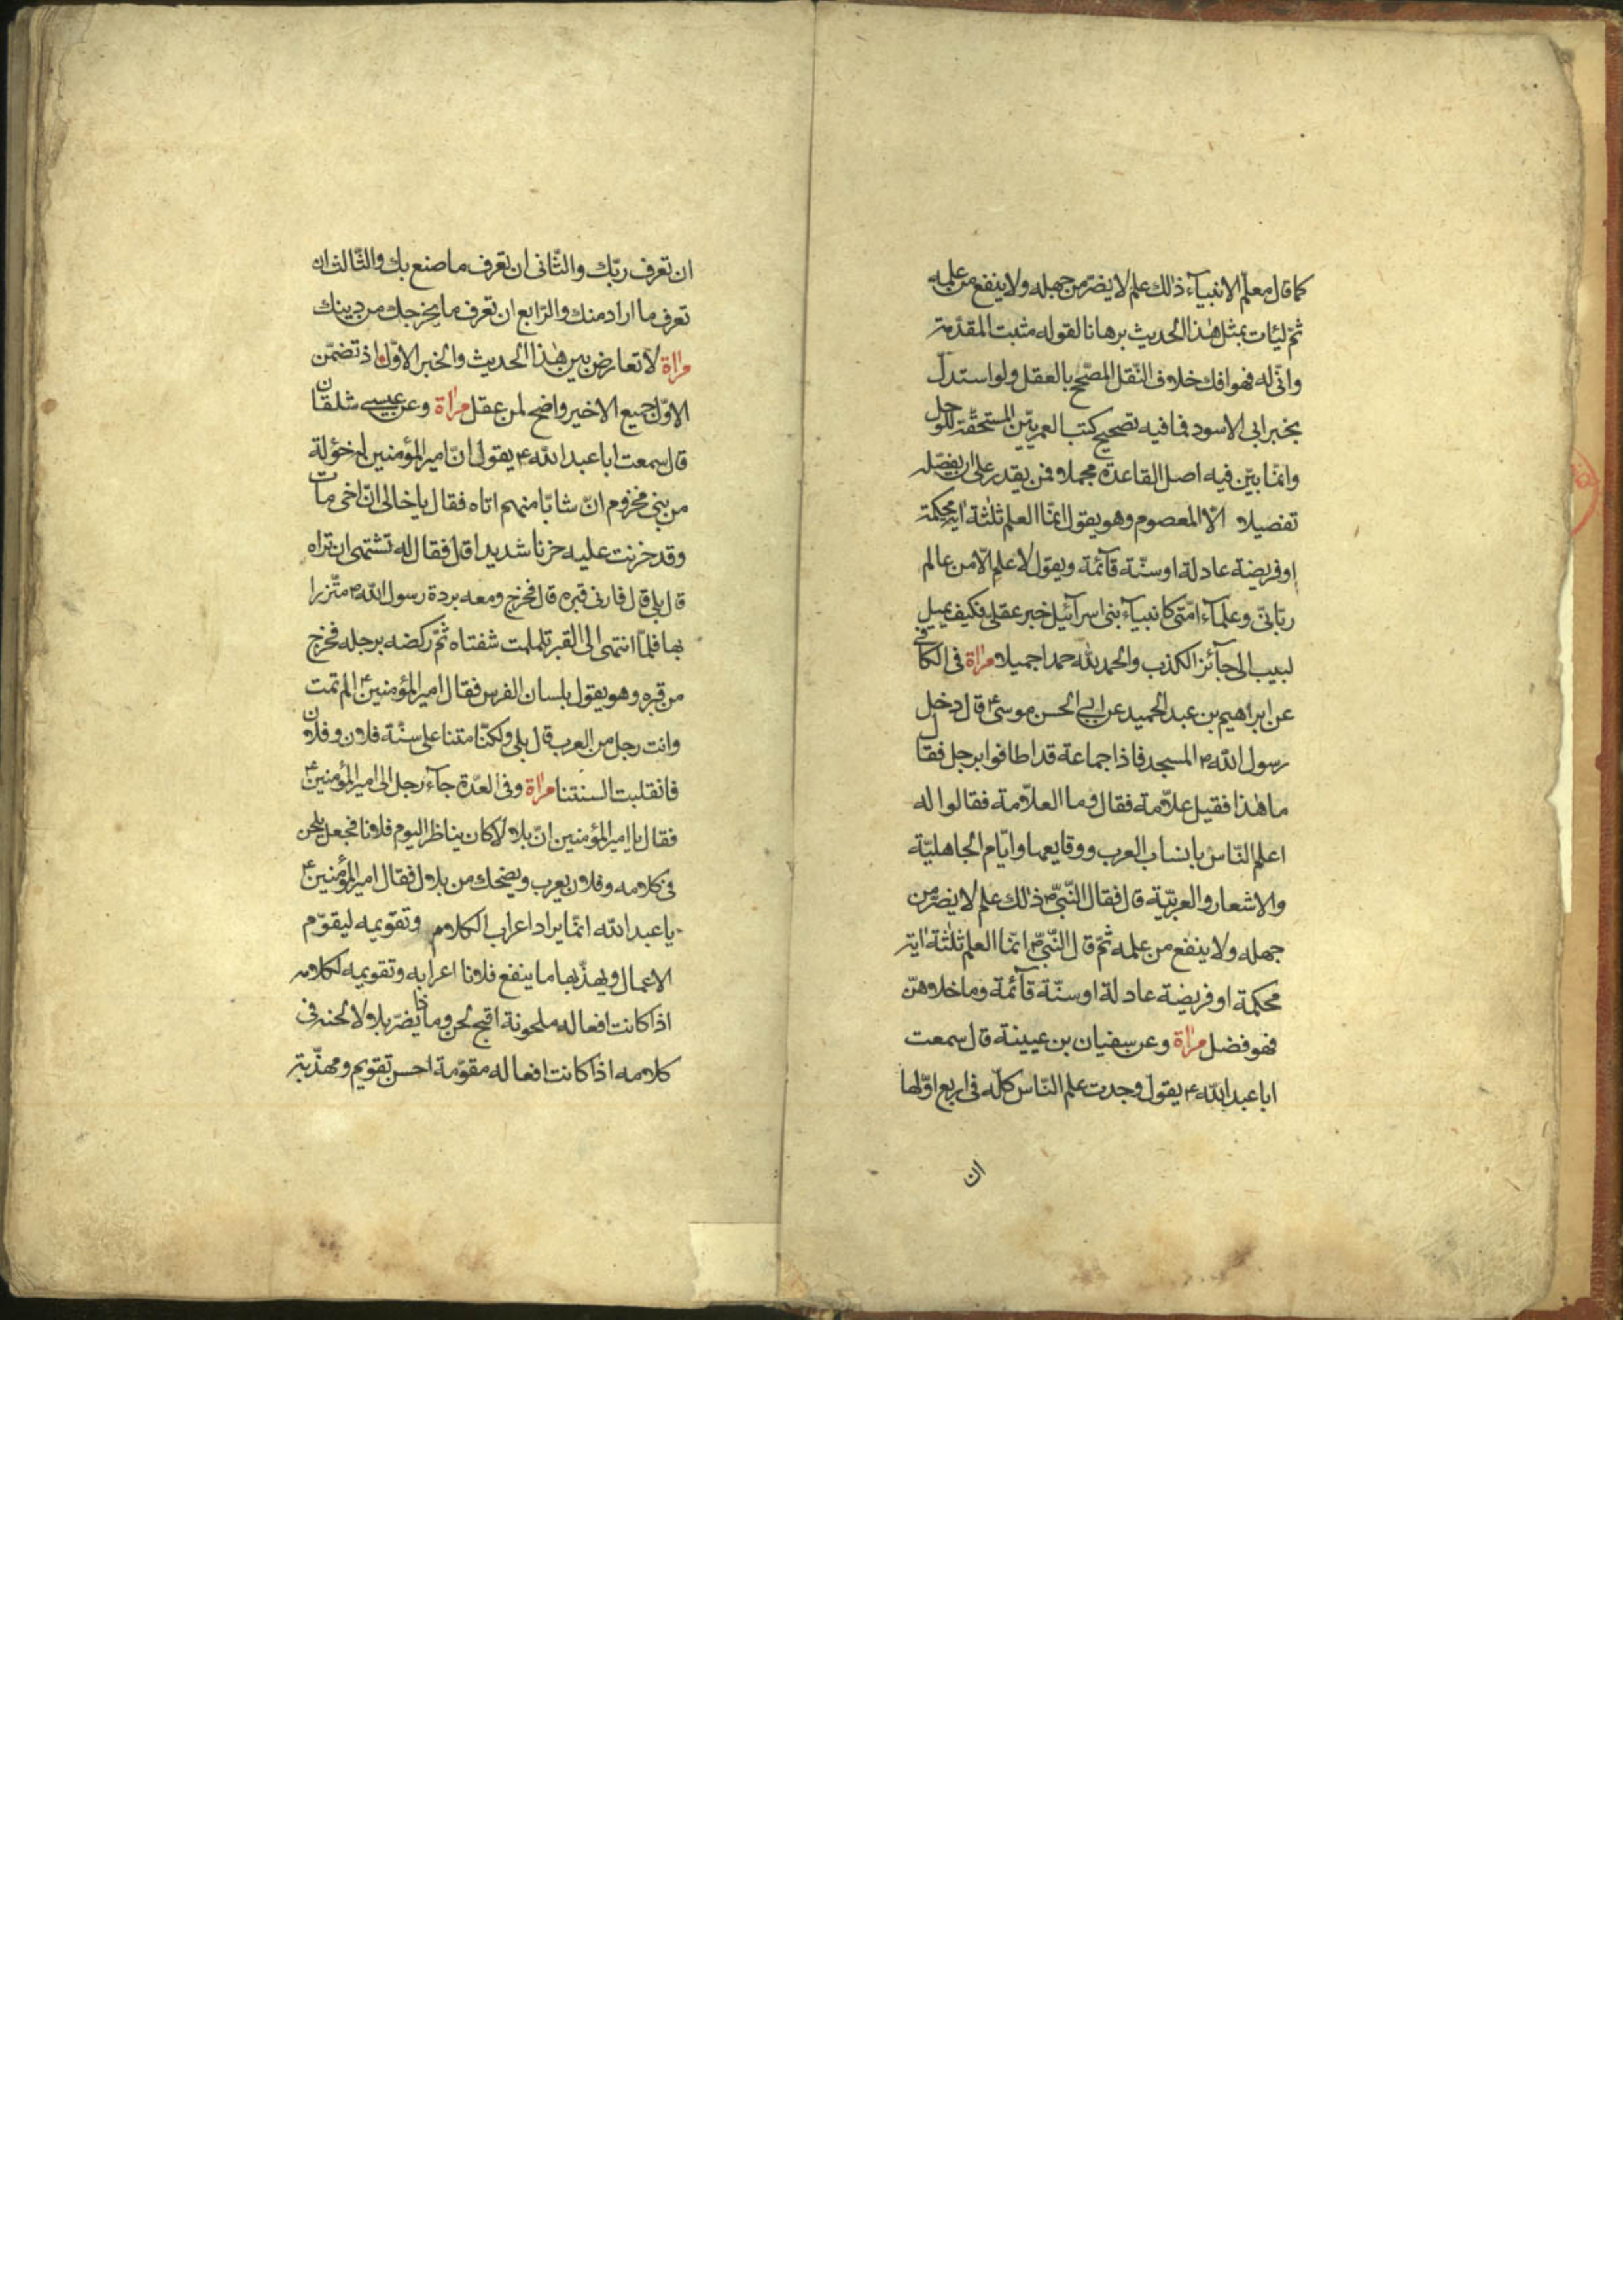 كما قال معلّم الانبيآء ذلك علم لا يضرّ من جهله ولا ينفع من علمه
ثمّ ليئات بمثل هٰذا الحديث برهانا لقوله مثبت المقدّمة
وانّى له فهو افك خلاف النّقل المصحّح بالعقل ولو استدلّ
بخبر ابى الاسود فما فيه تصحيح كتب العربيّين المستحقّة للوحل
وانّما بيّن فيه اصل القاعدة مجملا فمن يقدر على ان يفصّله
تفصيلا الّا المعصوم وهو يقول انّما العلم ثلٰثة اية محكمة
او فريضة عادلة او سنّة قآئمة ويقول لا علم الّا من عالم
ربّانىّ وعلمآء امّتى كانبيآء بنى اسرآئيل خبر عقلى فكيف يميل
لبيب الى جآئز الكذب والحمد للّٰه حمدا جميلا مرٰاة فى الكافى
عن ابراهيم بن عبد الحميد عن ابى الحسن موسى ع قال دخل
رسول اللّه ص المسجد فاذا جماعة قد اطافوا برجل فقال
ما هٰذا فقيل علّامة فقال وما العلّامة فقالوا له
اعلم النّاس بانساب العرب ووقايعها وايّام الجاهليّة
والاشعار والعربيّة قال فقال النّبىّ ص ذٰلك علم لا يضرّ من
جهله ولا ينفع من علمه ثمّ قال النّبىّ ص انّما العلم ثلٰثة اية
محكمة او فريضة عادلة او سنّة قآئمة وما خلاهنّ
فهو فضل مرٰاة وعن سفيان بن عيينة قال سمعت
ابا عبد اللّه ع يقول وجدت علم النّاس كلّه فى اربع اوّلها
ان
ان تعرف ربّك والثّانى ان تعرف ما صنع بك والثّالث ان
تعرف ما اراد منك والرّابع ان تعرف ما يخرجك من دينك
مرٰاة لا تعارض بين هٰذا الحديث والخبر الاوّل اذ تضمّن
الاوّل جميع الاخير واضح لمن عقل مرٰاة وعن عيسى شلقان
قال سمعت ابا عبد اللّه ع يقول انّ امير المؤمنين له خؤلة
من بنى مخزوم انّ شابّا منهم اتاه فقال يا خالى انّ اخى مات
وقد حزنت عليه حزنا شديدا قال فقال له تشتهى ان تراه
قال بلى قال فارنى قبره قال فخرج ومعه بردة رسول اللّه ص متّزرا
بها فلمّا انتهى الى القبر تلملمت شفتاه ثمّ ركضه برجله فخرج
من قبره وهو يقول بلسان الفرس فقال امير المؤمنين ع الم تمت
وانت رجل من العرب قال بلى ولكنّا متنا على سنّة فلان وفلان
فانقلبت السنتنا مرٰاة وفى العدّة جآء رجل الى امير المؤمنين ع
فقال يا امير المؤمنين انّ بلالا كان يناظر اليوم فلانا فجعل يلحن
فى كلامه وفلان يعرب ويضحك من بلال فقال امير المؤمنين ع
يا عبد اللّه انّما يراد اعراب الكلام وتقويمه ليقوّم
الاعمال ويهذّبها ما ينفع فلانا اعرابه وتقويمه لكلامه
اذا كانت افعاله ملحونة اقبح لحن وما ذا يضرّ بلالا لحنه فى
كلامه اذا كانت افعاله مقوّمة احسن تقويم ومهذّبة